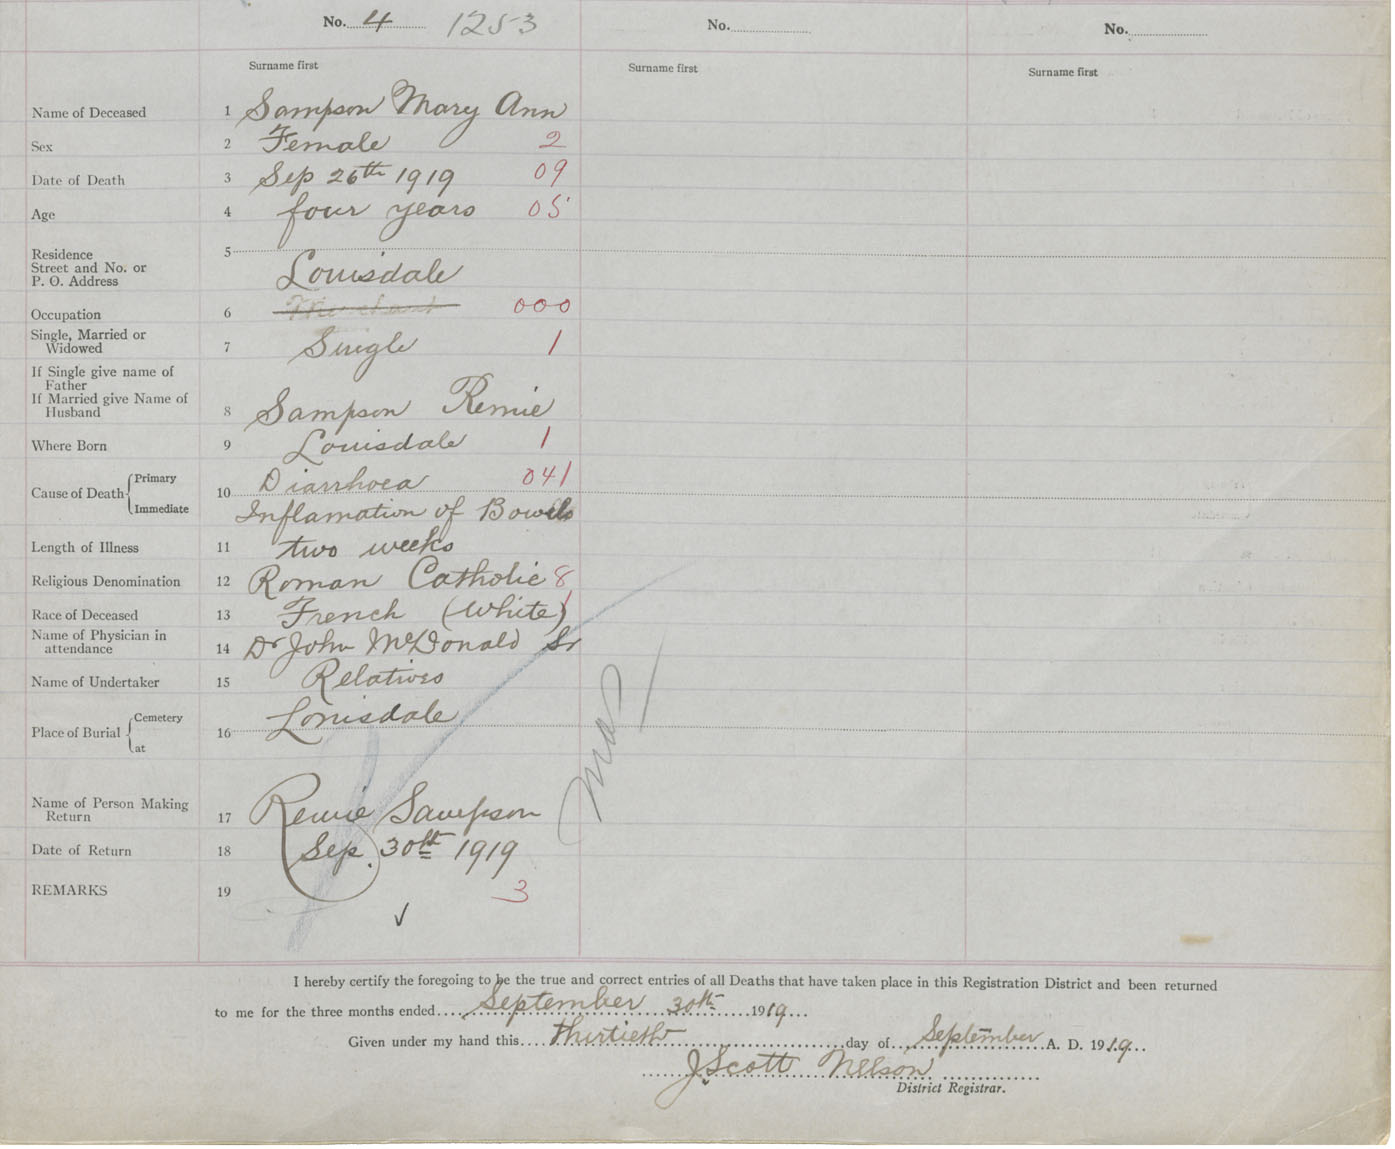 No. 4 1253 No. No.
Surname first Surname first Surname first
Name of Deceased 1 Sampson Mary Ann
Sex 2 Female 2
Date of Death 3 Sep 26th 1919 09
Age 4 four years 05
Residence 5
Street and No. or
P. O. Address Louisdale
Occupation 6 000
Single, Married or
Widowed 7 Single 1
If Single give name of
Father
If Married give Name of
Husband 8 Sampson Remie
Where Born 9 Louisdale 1
Cause of Death Primary 10 Diarrhoea 041
Immediate Inflamation of Bowels
Length of Illness 11 two weeks
Religious Denomination 12 Roman Catholic 8
Race of Deceased 13 French (White) 1
Name of Physician in
attendance 14 Dr John McDonald Sr
Name of Undertaker 15 Relatives
Place of Burial Cemetery 16 Louisdale
at
Name of Person Making
Return 17 Remie Sampson
Date of Return 18 Sep. 30th 1919
REMARKS 19 3
I hereby certify the foregoing to be the true and correct entries of all Deaths that have taken place in this Registration District and been returned
to me for the three months ended September 30th 1919
Given under my hand this thirtieth day of September A. D. 1919
J Scott Nelson
District Registrar.